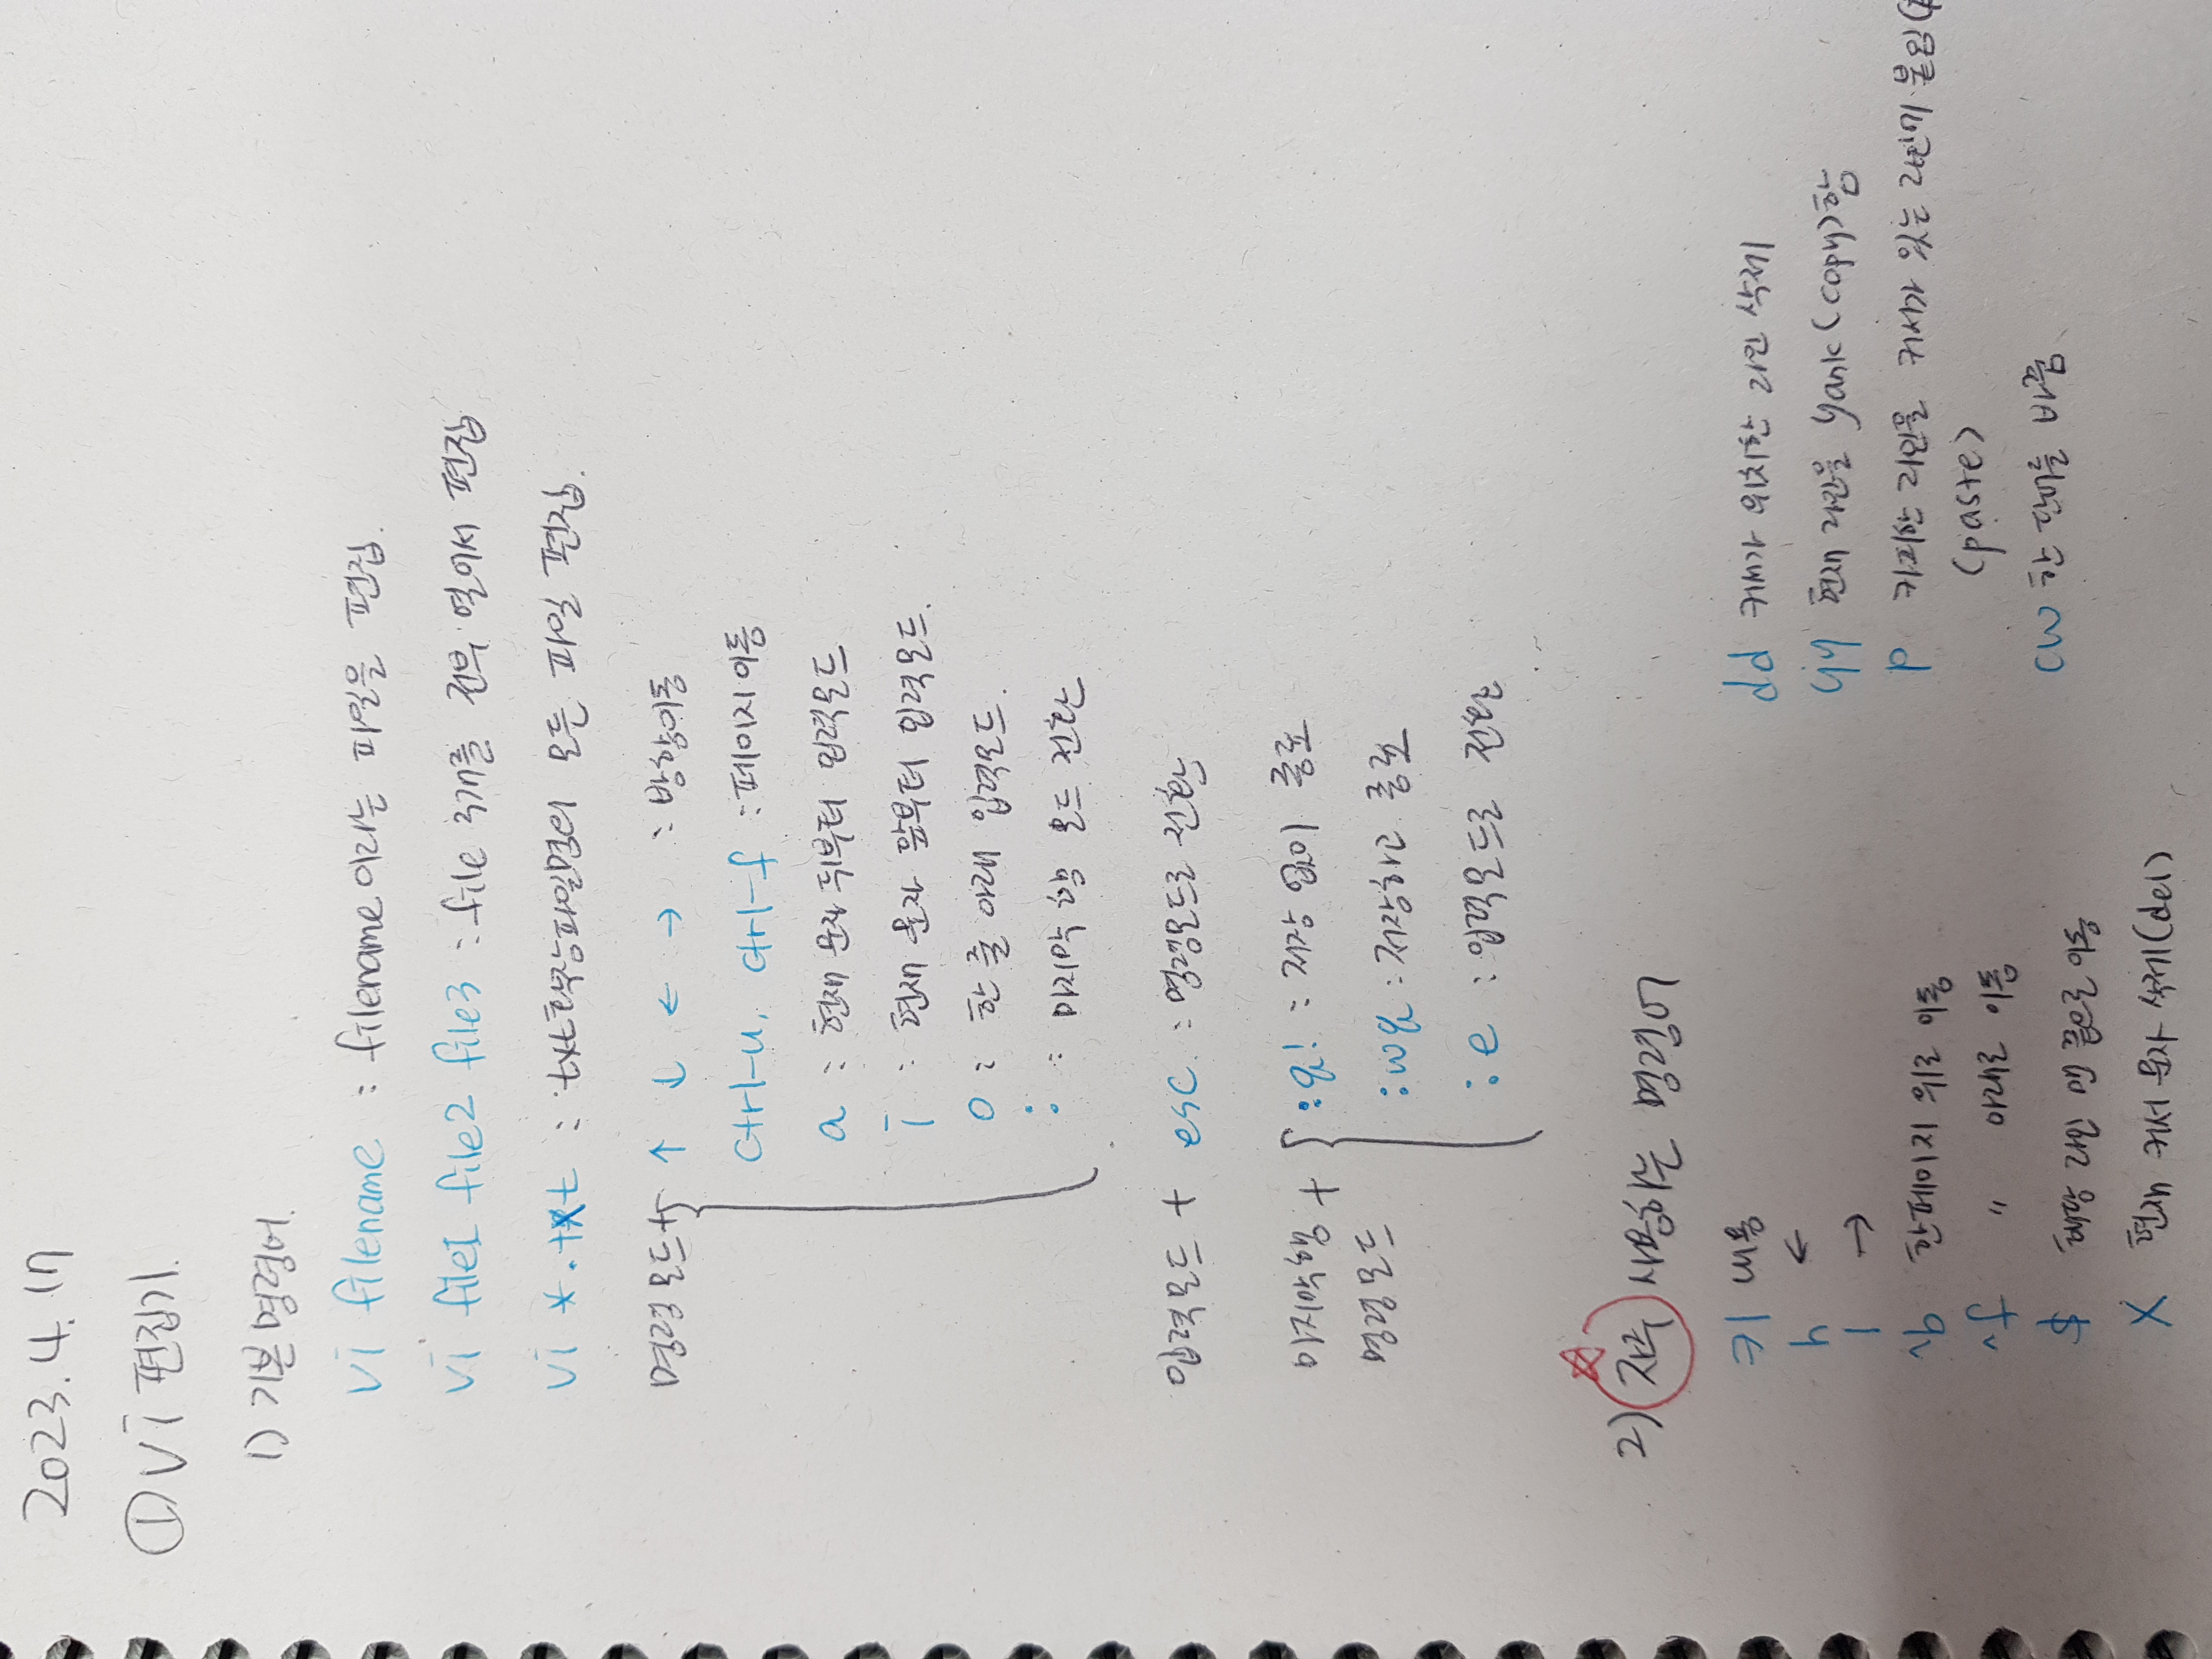 2023.4.17
① vi 편집기
1) 기본명령어
vi filename : filename이라는 파일을 편집.
vi file1 file2 file3 : file 3개를 전부 열어서 편집
vi *.txt : txt확장파일명의 모든 파일 편집.
명령모드+ { ↑ ↓ ← → : 방향이동
ctrl-u, ctrl-f : 페이지이동
a : 현재 문자 뒤부터 입력모드
i : 현재 문자 앞부터 입력모드.
o : 한 줄 아래 입력모드.
: : 마지막 행 모드 전환
입력모드 + esc : 명령모드로 전환
마지막행 + { :q! : 저장 없이 종료
명령모드 :wq : 저장하고 종료
:e : 입력모드로 전환
2) 자주 사용하는 명령어
키 내용
h ←
l →
^b 한페이지 위로 이동
^f 〃 아래로 이동
$ 해당 라인 맨 끝으로 이동
X 현재 커서 문자 삭제(del)
dd 커서가 위치한 라인 삭제
yy 현재 라인을 yank(copy)함
p 카피한 라인을 커서가 있는 라인에 붙임
(paste)
cw 한 단어를 바꿈.